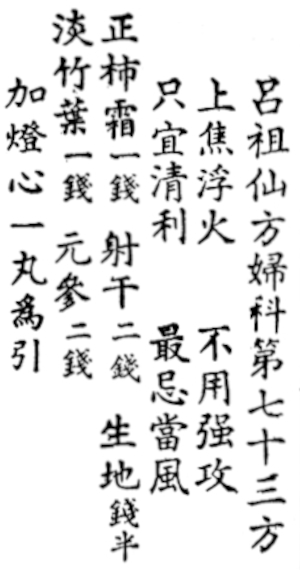 呂祖仙方婦科第七十三方
上焦浮火　不用强攻
只宜清利　最忌當風
正柿霜一錢　射干二錢　生地錢半
淡竹葉一錢　元參二錢
加燈心一丸為引